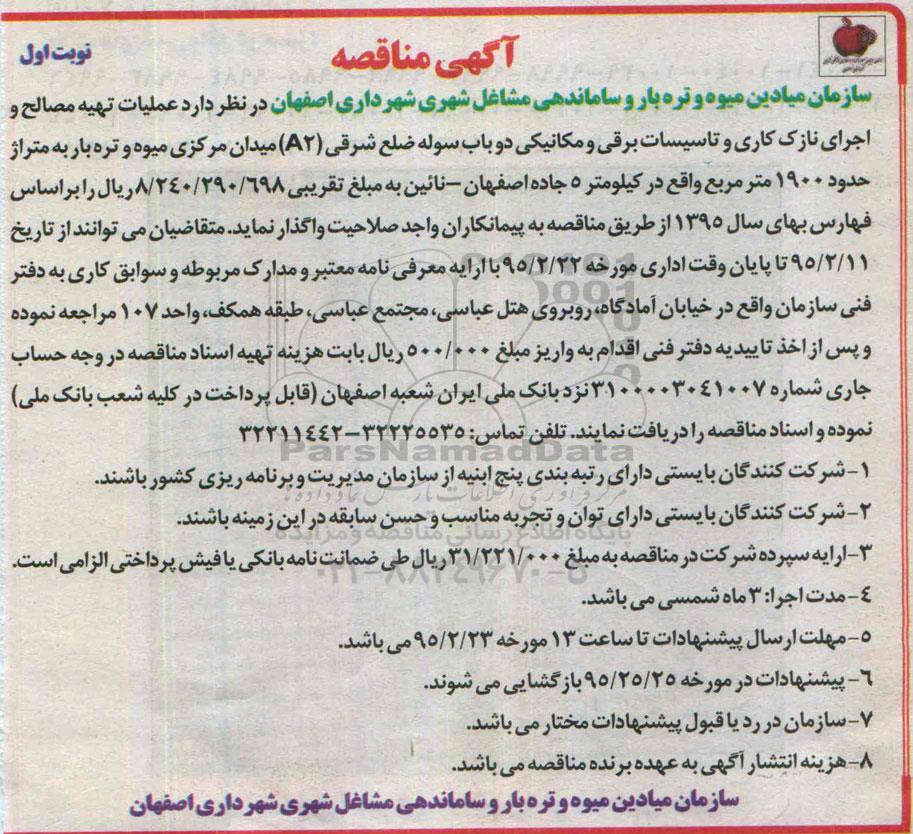 آگهی مناقصه
نوبت اول
سازمان میادین میوه و تره بار و ساماندهی مشاغل شهری شهرداری اصفهان در نظر دارد عملیات تهیه مصالح و
اجرای نازک کاری و تاسیسات برقی و مکانیکی دو باب سوله ضلع شرقی (A2) میدان مرکزی میوه و تره بار به متراژ
حدود ۱۹۰۰ متر مربع واقع در کیلومتر ۵ جاده اصفهان –نائین به مبلغ تقریبی ۸/۲۴۰/۲۹۰/۶۹۸ ریال را براساس
فهارس بهای سال ۱۳۹۵ از طریق مناقصه به پیمانکاران واجد صلاحیت واگذار نماید. متقاضیان می توانند از تاریخ
۹۵/۲/۱۱ تا پایان وقت اداری مورخه ۹۵/۲/۲۲ با ارایه معرفی نامه معتبر و مدارک مربوطه و سوابق کاری به دفتر
فنی سازمان واقع در خیابان آمادگاه، روبروی هتل عباسی، مجتمع عباسی، طبقه همکف، واحد ۱۰۷ مراجعه نموده
و پس از اخذ تاییدیه دفتر فنی اقدام به واریز مبلغ ۵۰۰/۰۰۰ ریال بابت هزینه تهیه اسناد مناقصه در وجه حساب
جاری شماره ۳۱۰۰۰۰۳۰۴۱۰۰۷ نزد بانک ملی ایران شعبه اصفهان (قابل پرداخت در کلیه شعب بانک ملی)
نموده و اسناد مناقصه را دریافت نمایند. تلفن تماس: ۳۲۲۲۵۵۳۵–۳۲۲۱۱۴۴۲
ParsNamadData
۱-شرکت کنندگان بایستی دارای رتبه بندی پنج ابنیه از سازمان مدیریت و برنامه ریزی کشور باشند.
مرکز فرآوری اطلاعات پارس نماد داده ها
۲-شرکت کنندگان بایستی دارای توان و تجربه مناسب و حسن سابقه در این زمینه باشند.
پایگاه اطلاع رسانی مناقصه و مزایده
۳-ارایه سپرده شرکت در مناقصه به مبلغ ۳۱/۲۲۱/۰۰۰ ریال طی ضمانت نامه بانکی یا فیش پرداختی الزامی است.
۰۲۱-۸۸۳۴۹۶۷۰-۵
۴-مدت اجرا: ۳ ماه شمسی می باشد.
۵-مهلت ارسال پیشنهادات تا ساعت ۱۳ مورخه ۹۵/۲/۲۳ می باشد.
۶-پیشنهادات در مورخه ۹۵/۲۵/۲۵ بازگشایی می شوند.
۷-سازمان در رد یا قبول پیشنهادات مختار می باشد.
۸-هزینه انتشار آگهی به عهده برنده مناقصه می باشد.
سازمان میادین میوه و تره بار و ساماندهی مشاغل شهری شهرداری اصفهان